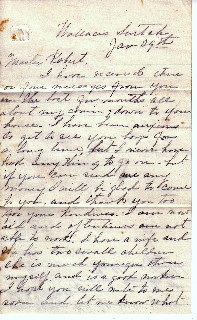 Jan 29th
Master Robert.
I have received three
or four messages from you
in the last few months all
about my coming down to your
house. I have been anxious
to get to see you boys for
a long time, but I never have
had any thing to go on - but
if you can send me any
money I will be glad to come
to you, and thank you too
for your kindness. I am not
and of
able to work. I have a wife and
she has two small children
she is much younger than
myself and is a good worker
I hope you will write to me
soon and let me know what